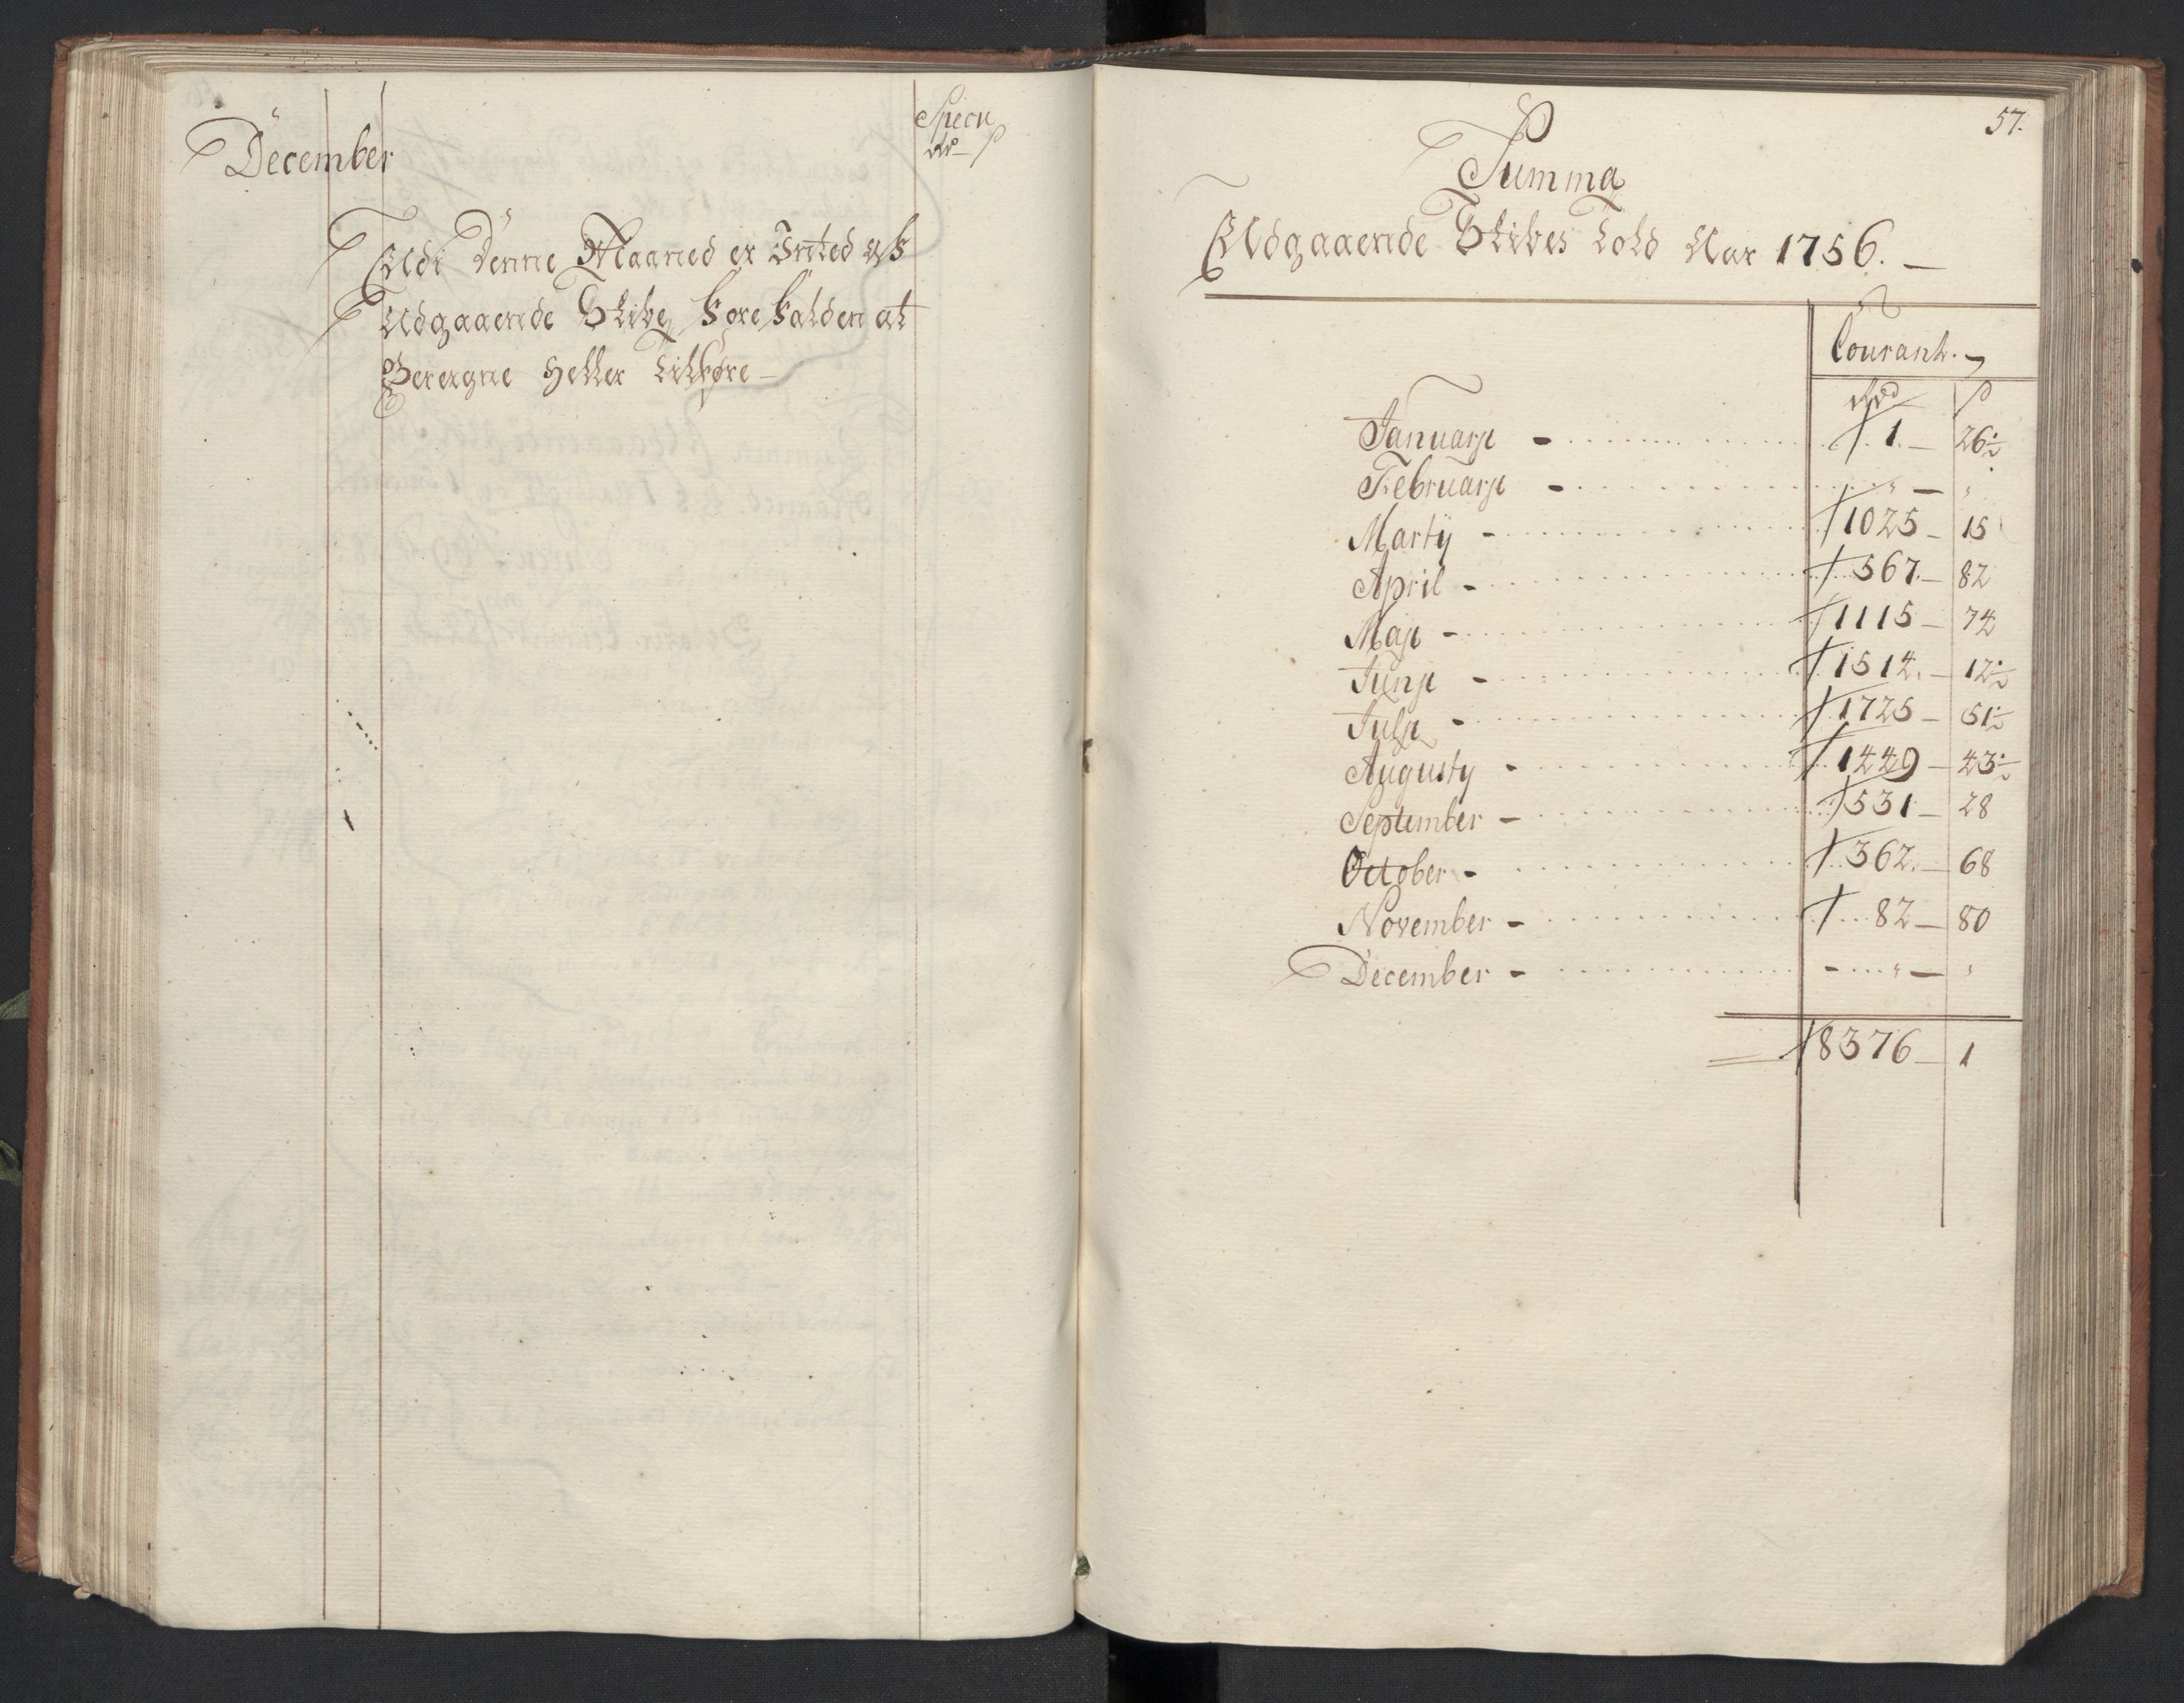 December
Specie
Rdr ß
Udi denne Maaned er Inted af
Udgaaende Skibe forefalden at
Beregne heller tilføre —
57.
Summa
Udgaaende Skibes Told Aar 1756. —
Courant. —
Rdr ß
Januarji - 1. — 26½
Februarji - " — "
Martij - 1025 — 15
April - 567. — 82
Maji - 1115 — 74
Junji - 1514. — 12½
Julji - 1725 — 51½
Augusty - 1449 — 43½
September - 531 — 28
October - 362. — 68
November - 82 — 80
December - " — "
8376 — 1